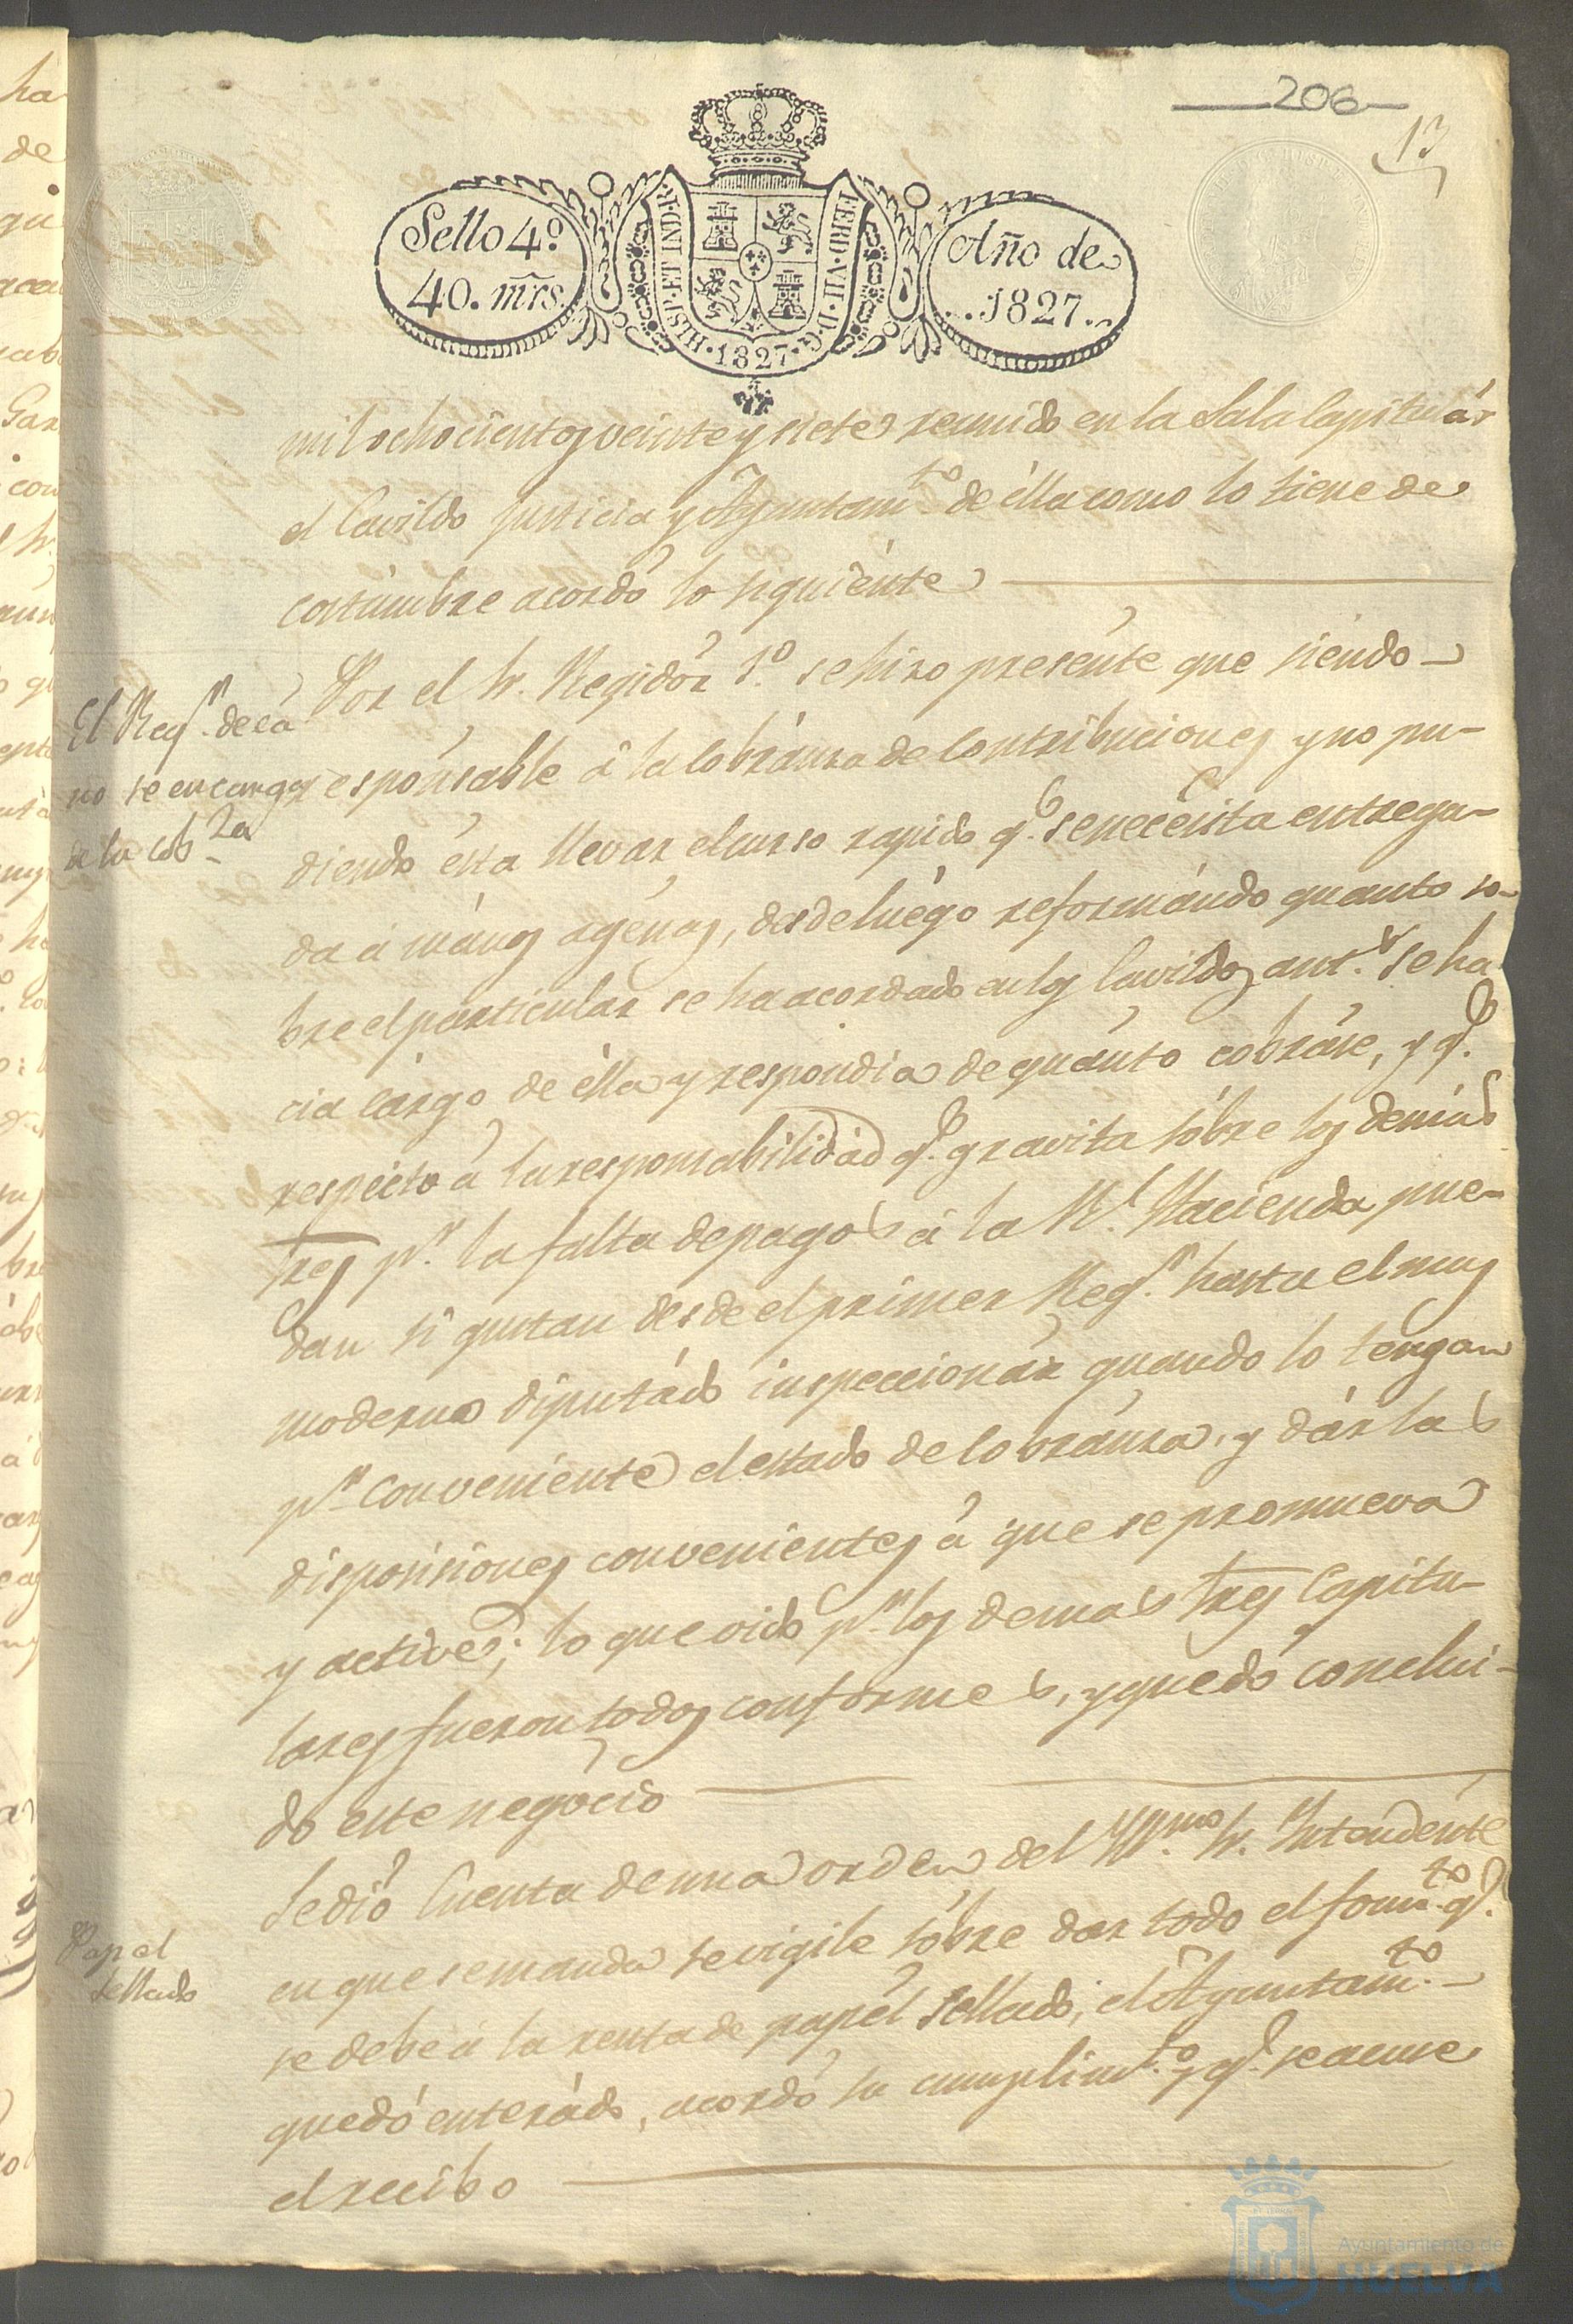 206
13
Sello 4º
40. mrs.
HISP. ET IND. R.
FERD. VII. D. G.
1827
Año de
1827
mil ochocientos veinte y siete reunido en la Sala Capitulár
el Cavildo Justicia y Ayuntamto de élla como lo tiene de
costúmbre acordó lo siguiénte
El Regr. deca
no se encarga
de la cobza
Por el Sr. Regidór 1º. se hizo presénte que siéndo
responsáble á la Cobránza de Contribuciones y no pu-
diendo ésta llevar el curso rapido q.e se necesita entrega-
da a mános agénas, desde luégo reformándo quanto so-
bre el particular se ha acordado en los Cavildos ant.s se ha
cia cárgo de élla y respondia de quánto cobráse, y q.e
respécto á la responsabilidad q.e gravita sóbre los demás
Sres pr. la falta de pagos á la Rl. Hacienda pue-
dan si gustan desde el primer Regr. hasta el mas
moderno diputádo inspeccionár quando lo tengan
pr conveniente el estado de Cobránza, y dár las
disposisiones convenientes á que se promueva
y active; lo que oido pr los demas Sres Capitu-
lares fueron todos conformes, y quedó conclui-
do este negócio
Papel
sellado
Se dió Cuenta de una orden del Yllmo Sr. Intendénte
en que se manda se vigile sóbre dar todo el fomto q.e
se debe á la renta de papél sellado; el Ayuntamto
quedó enterádo, acordó su cumplimto y q.e se acuse
el recibo
Ayuntamiento de
HUELVA